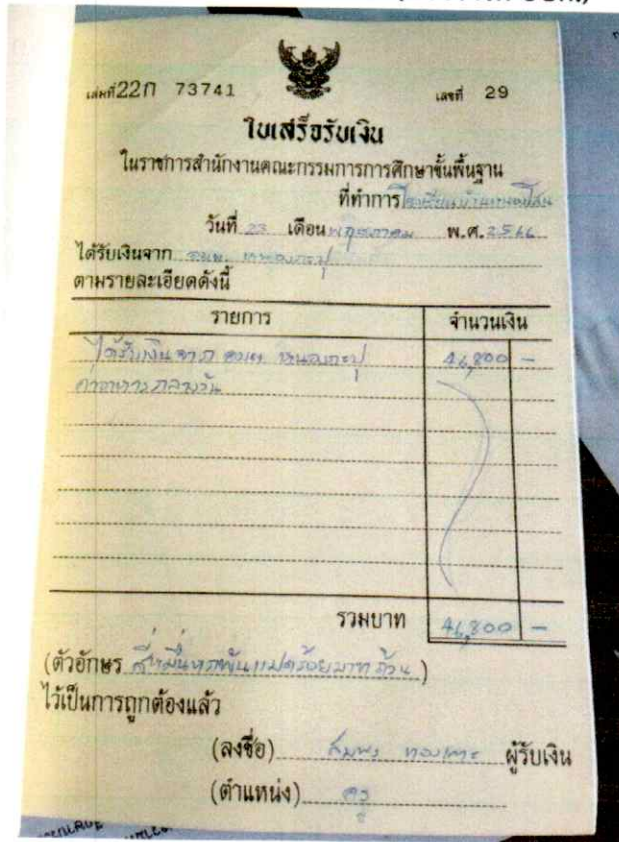 เล่มที่ 22ก 73741 เลขที่ 29
ใบเสร็จรับเงิน
ในราชการสำนักงานคณะกรรมการการศึกษาขั้นพื้นฐาน
ที่ทำการ โรงเรียนบ้าน
วันที่ 23 เดือน พฤษภาคม พ.ศ. 2566
ได้รับเงินจาก อบต.
ตามรายละเอียดดังนี้
รายการ จำนวนเงิน
ได้รับเงินจาก อบต. 46,800 -
ค่าอาหารกลางวัน
รวมบาท 46,800 -
(ตัวอักษร สี่หมื่นหกพันแปดร้อยบาทถ้วน)
ไว้เป็นการถูกต้องแล้ว
(ลงชื่อ) ผู้รับเงิน
(ตำแหน่ง) ครู